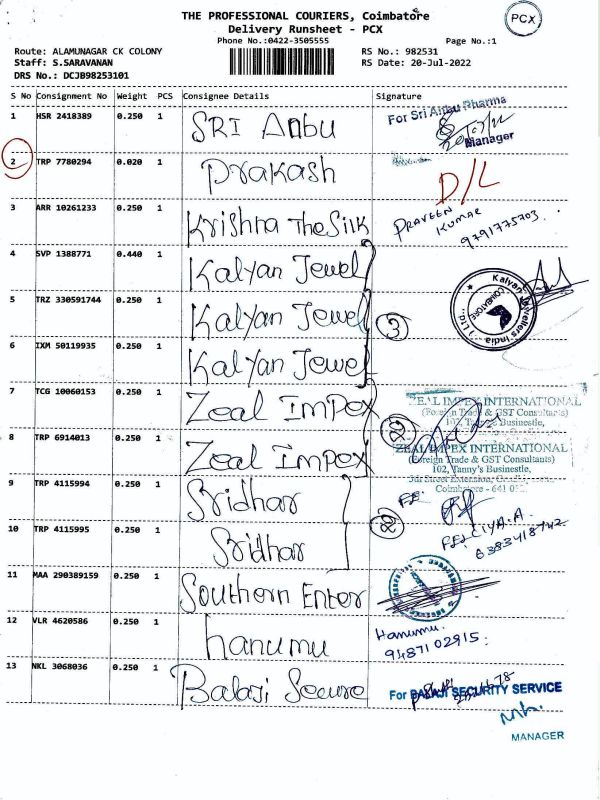 THE PROFESSIONAL COURIERS, Coimbatore
PCX
Delivery Runsheet - PCX
Phone No.:0422-3505555
Page No.:1
Route: ALAMUNAGAR CK COLONY
RS No.: 982531
Staff: S.SARAVANAN
RS Date: 20-Jul-2022
DRS No.: DCJB98253101
S No Consignment No Weight PCS Consignee Details Signature
1 HSR 2418389 0.250 1 SRI Anbu For Sri Anbu Pharma
Manager
2 TRP 7780294 0.020 1 Prakash D/L
3 ARR 10261233 0.250 1 Krishna The Silk PRAVEEN KUMAR
9791775703
4 SVP 1388771 0.440 1 Kalyan Jewel
5 TRZ 330591744 0.250 1 Kalyan Jewel 3 Kalyan Jewellers India Ltd. COIMBATORE
6 IXM 50119935 0.250 1 Kalyan Jewel
7 TCG 10060153 0.250 1 Zeal Impex ZEAL IMPEX INTERNATIONAL
(Foreign Trade & GST Consultants)
102, Tanny's Businestle,
8 TRP 6914013 0.250 1 Zeal Impex 2 ZEAL IMPEX INTERNATIONAL
(Foreign Trade & GST Consultants)
102, Tanny's Businestle,
3rd Street Extension,
Coimbatore - 641
9 TRP 4115994 0.250 1 Sridhar
10 TRP 4115995 0.250 1 Sridhar 2 FELCIYA.A
6383418742
11 MAA 290389159 0.250 1 Southern Enter
12 VLR 4620586 0.250 1 hanumu Hanumu.
9487102915
13 NKL 3068036 0.250 1 Balaji Secure For BALAJI SECURITY SERVICE
MANAGER